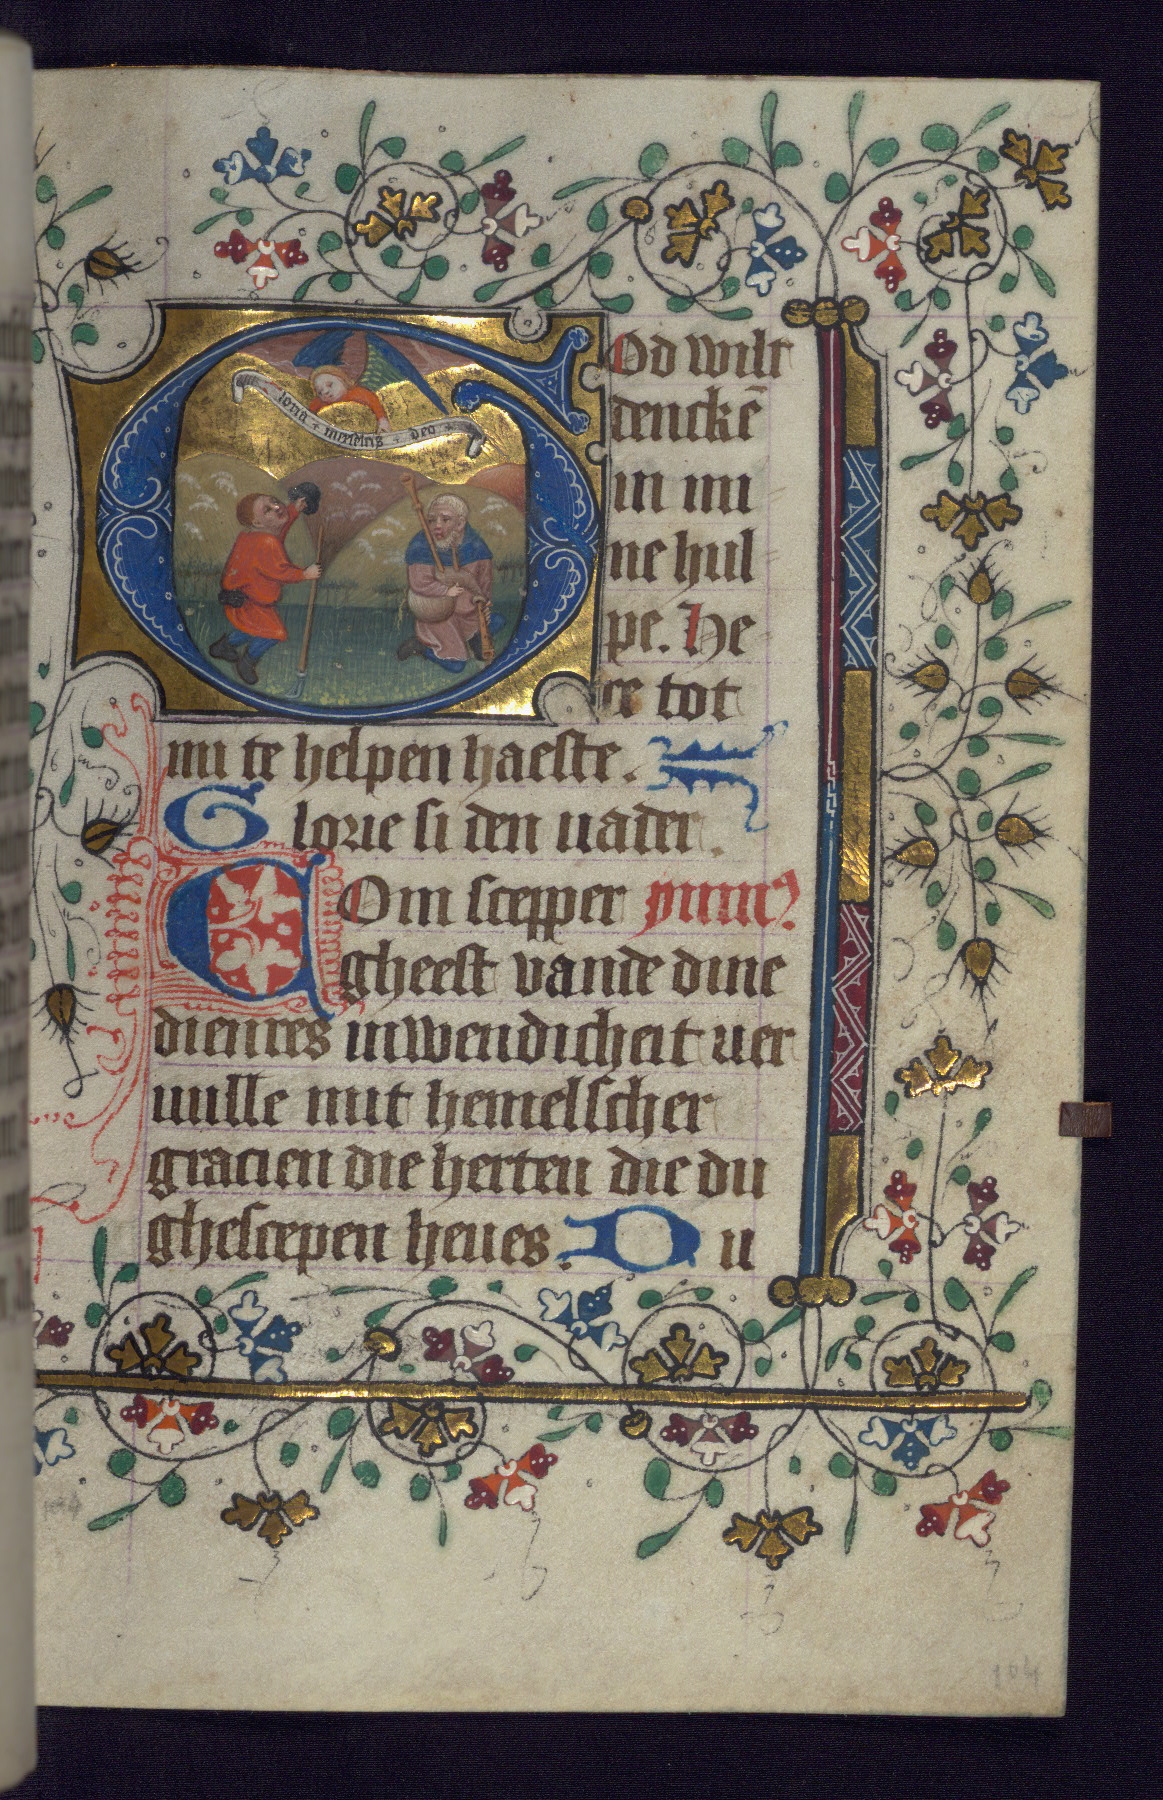 gloria in excelsis deo
God wilt
dencken̄
in mi
ne hul
pe. He
re tot
mi te helpen haeste.
Glorie si den uader.
Com scepper ymnus
gheest vande dine
dienres inwendicheit uer
uulle mit hemelscher
gracien die herten die du
ghescepen heues. Du
104